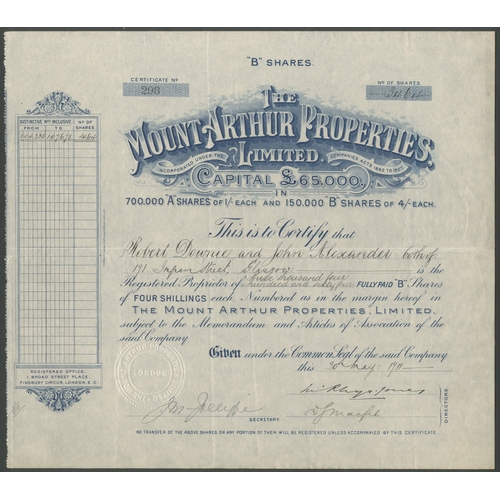 "B" SHARES.
CERTIFICATE No
298
No OF SHARES.
THE
MOUNT ARTHUR PROPERTIES,
LIMITED.
INCORPORATED UNDER THE
COMPANIES ACTS 1862 TO 1900.
CAPITAL £65,000,
IN
700.000 "A" SHARES OF 1/- EACH AND 150.000 "B" SHARES OF 4/- EACH.
DISTINCTIVE Nos INCLUSIVE.
Nº OF SHARES
FROM
TO
This is to Certify that
Robert Downie and John Alexander both of
191 Street, Glasgow is the
Registered Proprietor of three thousand four hundred and sixty four FULLY PAID "B" Shares
of FOUR SHILLINGS each, Numbered as in the margin hereof in
THE MOUNT ARTHUR PROPERTIES, LIMITED.
subject to the Memorandum and Articles of Association of the
said Company
Given under the Common Seal of the said Company
this May 1911
LONDON
REGISTERED OFFICE.
1, BROAD STREET PLACE,
FINSBURY CIRCUS, LONDON, E.C.
SECRETARY
DIRECTORS.
NO TRANSFER OF THE ABOVE SHARES OR ANY PORTION OF THEM WILL BE REGISTERED UNLESS ACCOMPANIED BY THIS CERTIFICATE.